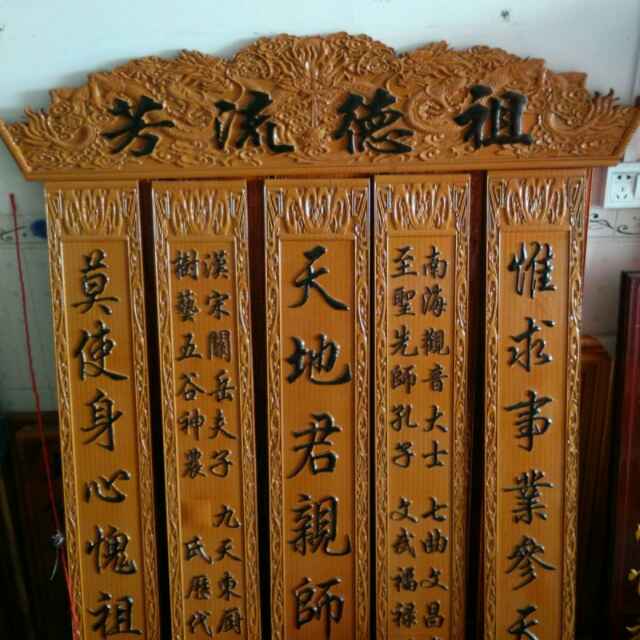 祖德流芳
惟求事業參天
南海觀音大士 七曲文昌
至聖先師孔子 文武福祿
天地君親師
漢宋關岳夫子 九天東廚
樹藝五谷神農 氏歷代
莫使身心愧祖